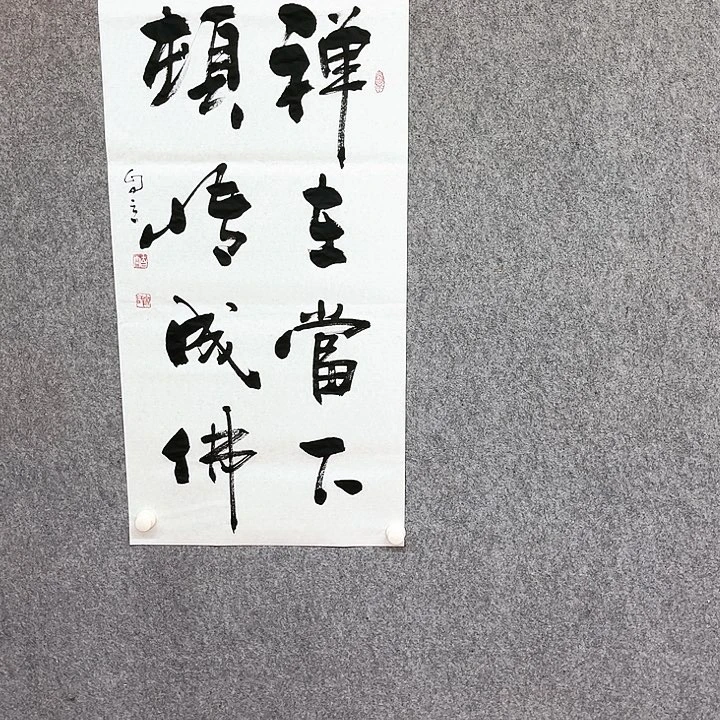 禅在當下
頓悟成佛